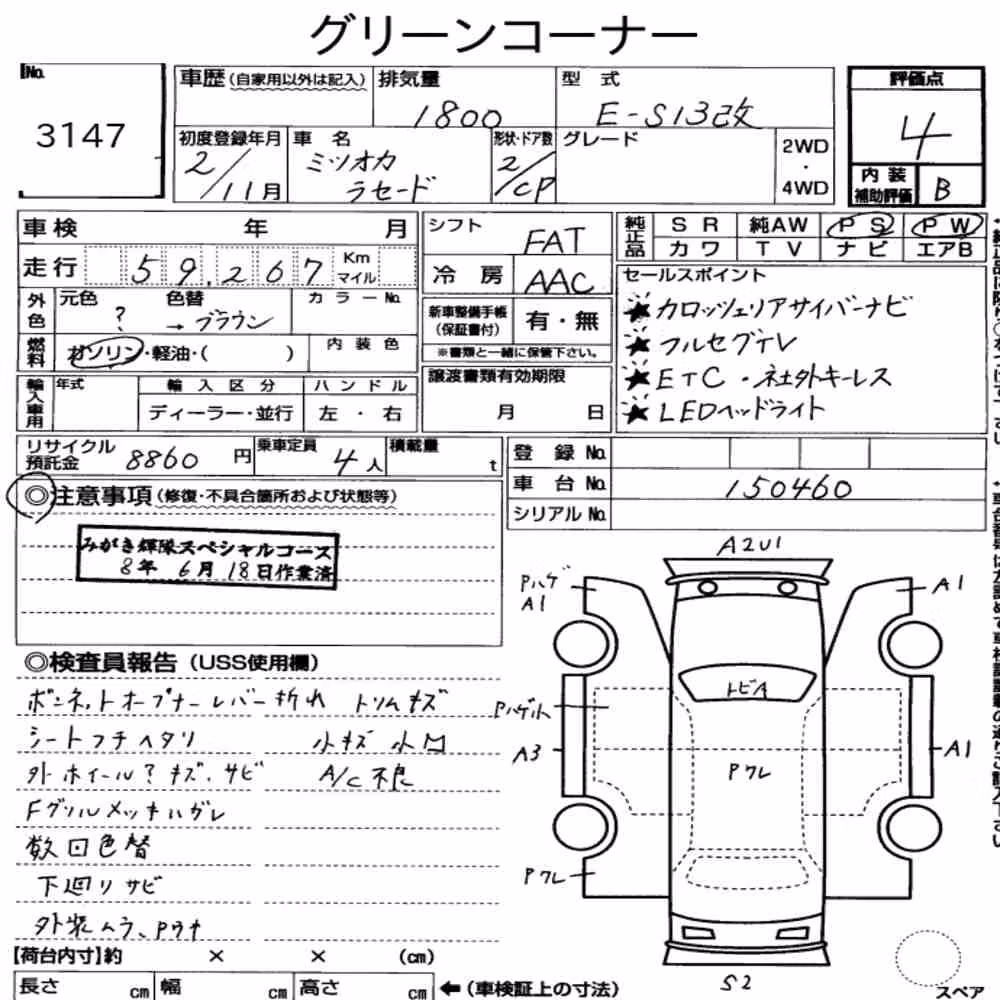 グリーンコーナー
No.
3147
車歴 (自家用以外は記入)
排気量
1800
型 式
E-S13改
評価点
4
内装補助評価
B
初度登録年月
2/11月
車 名
ミツオカ
ラセード
形状・ドア数
2/CP
グレード
2WD
・
4WD
車検 年 月
走行 59,267 Km マイル
外色
元色
?
色替
→ブラウン
カラーNo.
燃料
ガソリン・軽油・( )
内装色
輸入車用
年式
輸入区分
ディーラー・並行
ハンドル
左・右
シフト
FAT
冷房
AAC
新車整備手帳
(保証書付)
有・無
※書類と一緒に保管下さい。
譲渡書類有効期限
月 日
純正品
SR 純AW PS PW
カワ TV ナビ エアB
セールスポイント
★カロッツェリアサイバーナビ
★フルセグTV
★ETC・社外キーレス
★LEDヘッドライト
リサイクル
預託金
8860円
乗車定員
4人
積載量
t
登録No.
車台No.
150460
シリアルNo.
◎注意事項 (修復・不具合箇所および状態等)
みがき輝隊スペシャルコース
8年 6月 18日作業済
◎検査員報告 (USS使用欄)
ボンネットオープナーレバー折れ トリムキズ
シートフチヘタリ 小キズ小凹
外ホイール?キズ、サビ A/C不良
Fグリルメッキハガレ
数回色替
下廻りサビ
外装ムラ、Pワナ
A2U1
Pハゲ
A1
A1
トビA
Pハゲ小
A3
A1
Pワレ
Pワレ
S2
スペア
【荷台内寸】約 × × (cm)
長さ cm 幅 cm 高さ cm ←(車検証上の寸法)